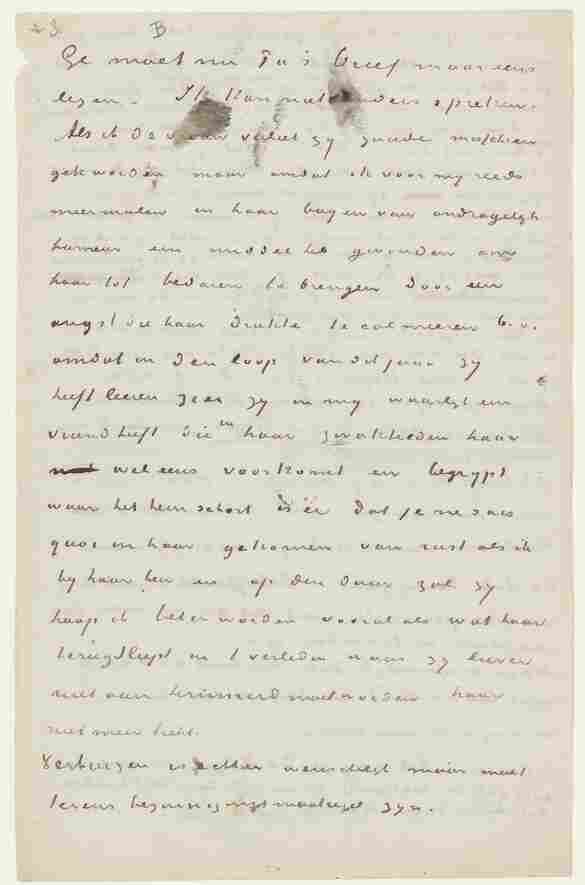 B
Ge moet nu Pa's brief maar eens
lezen. Ik kan niet anders spreken.
Als ik de vrouw verliet zy zoude misschien
gek worden maar omdat ik voor my reeds
meermalen in haar buyen van ondragelyk
humeur een middel heb gevonden om
haar tot bedaren te brengen door een
angst die haar drukte te calmeeren b.v.
omdat in den loop van dit jaar zy
heeft leeren zien zy in my waarlyk een
vriend heeft die in haar zwakheden haar
wel eens voorkomt en begrypt
waar het hem schort is er dat je ne sais
quoi in haar gekomen van rust als ik
by haar ben en op den duur zal zy
hoop ik beter worden vooral als wat haar
terugsleept in 't verleden waar zy liever
niet aan herinnerd moet worden haar
niet meer hebt.
Verhuizen is echter wenschelyk maar moet
tevens bezuinigingsmaatregel zyn.